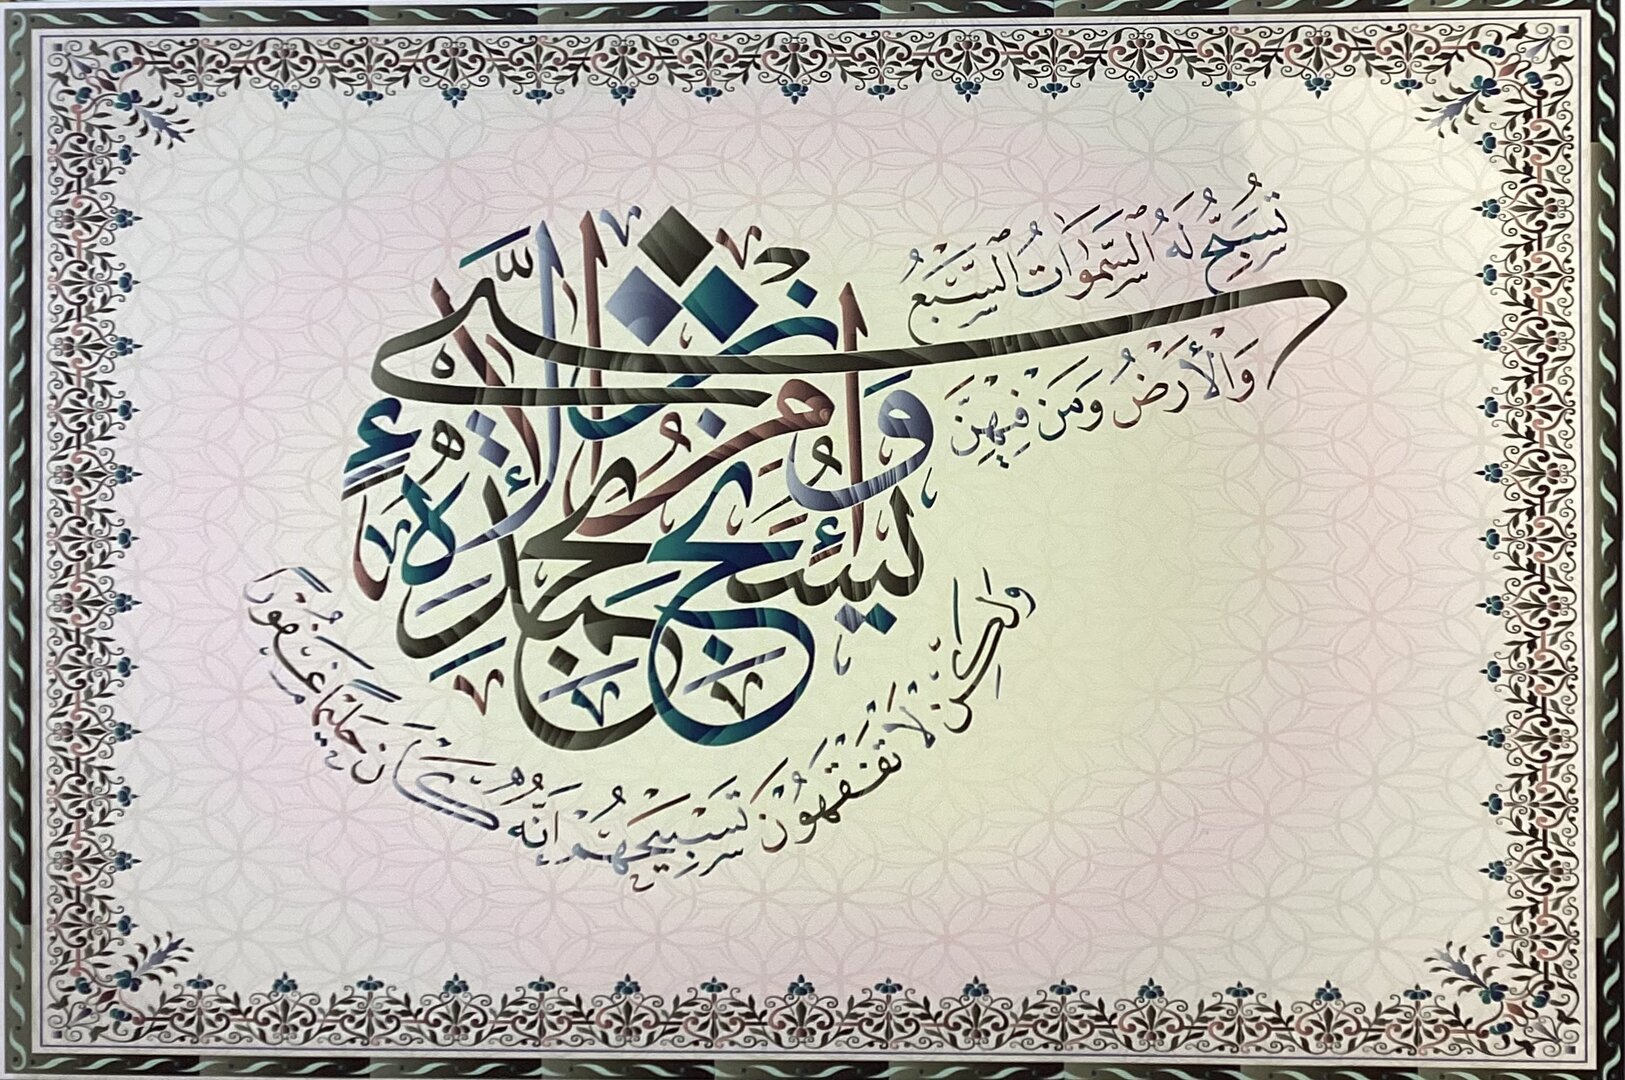 تُسَبِّحُ لَهُ السَّمٰوَاتُ السَّبْعُ
وَالْأَرْضُ وَمَنْ فِيهِنَّ
وَإِنْ مِنْ شَيْءٍ إِلَّا يُسَبِّحُ بِحَمْدِهِ
وَلٰكِنْ لَا تَفْقَهُونَ تَسْبِيحَهُمْ إِنَّهُ كَانَ حَلِيمًا غَفُورًا